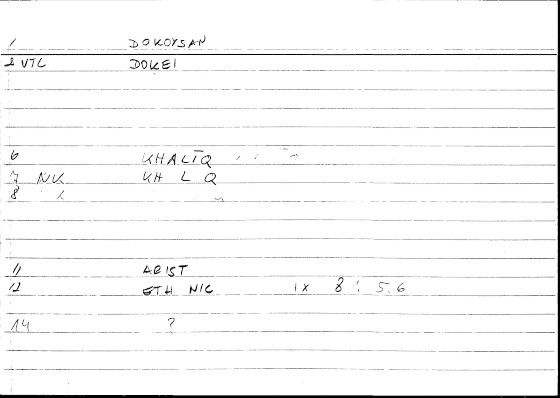 1 DOKOYSAN
2 VTC DOKEI
6 KHALĪQ
7 NK KH L Q
8
11 ARIST
12 ETH NIC IX 8 : 5.6
14 ?